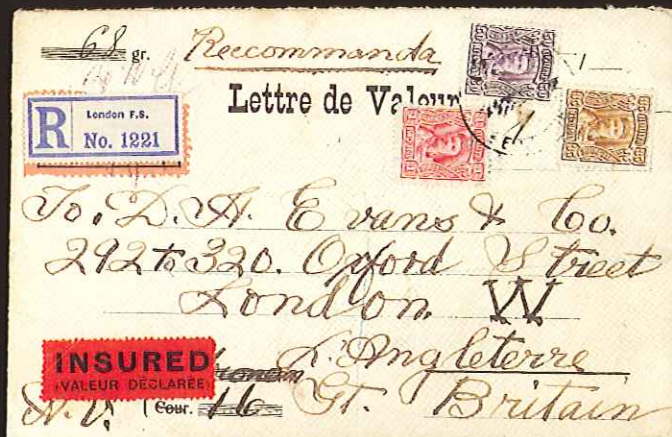 68 gr. Reccommanda
Lettre de Valeur
R London F.S.
No. 1221
To, D. H. Evans & Co.
292 to 320. Oxford Street
London. W
L'Angleterre
INSURED
(VALEUR DÉCLARÉE)
Cour. 16 Gt. Britain